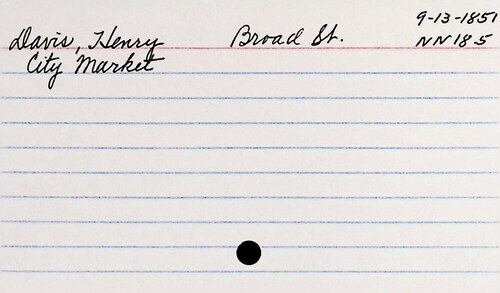 Davis, Henry Broad St. 9-13-1851
City Market NN 18-5